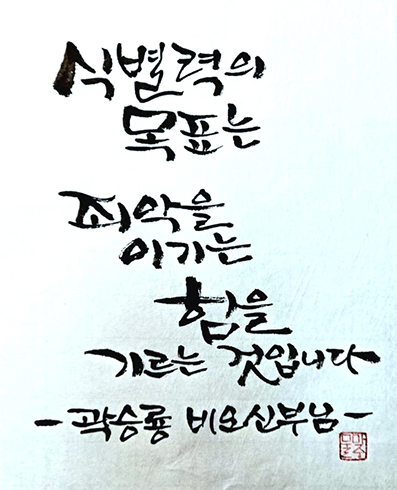 식별력의
목표는
죄악을
이기는
힘을
기르는 것입니다
- 곽승룡 비오신부님 -